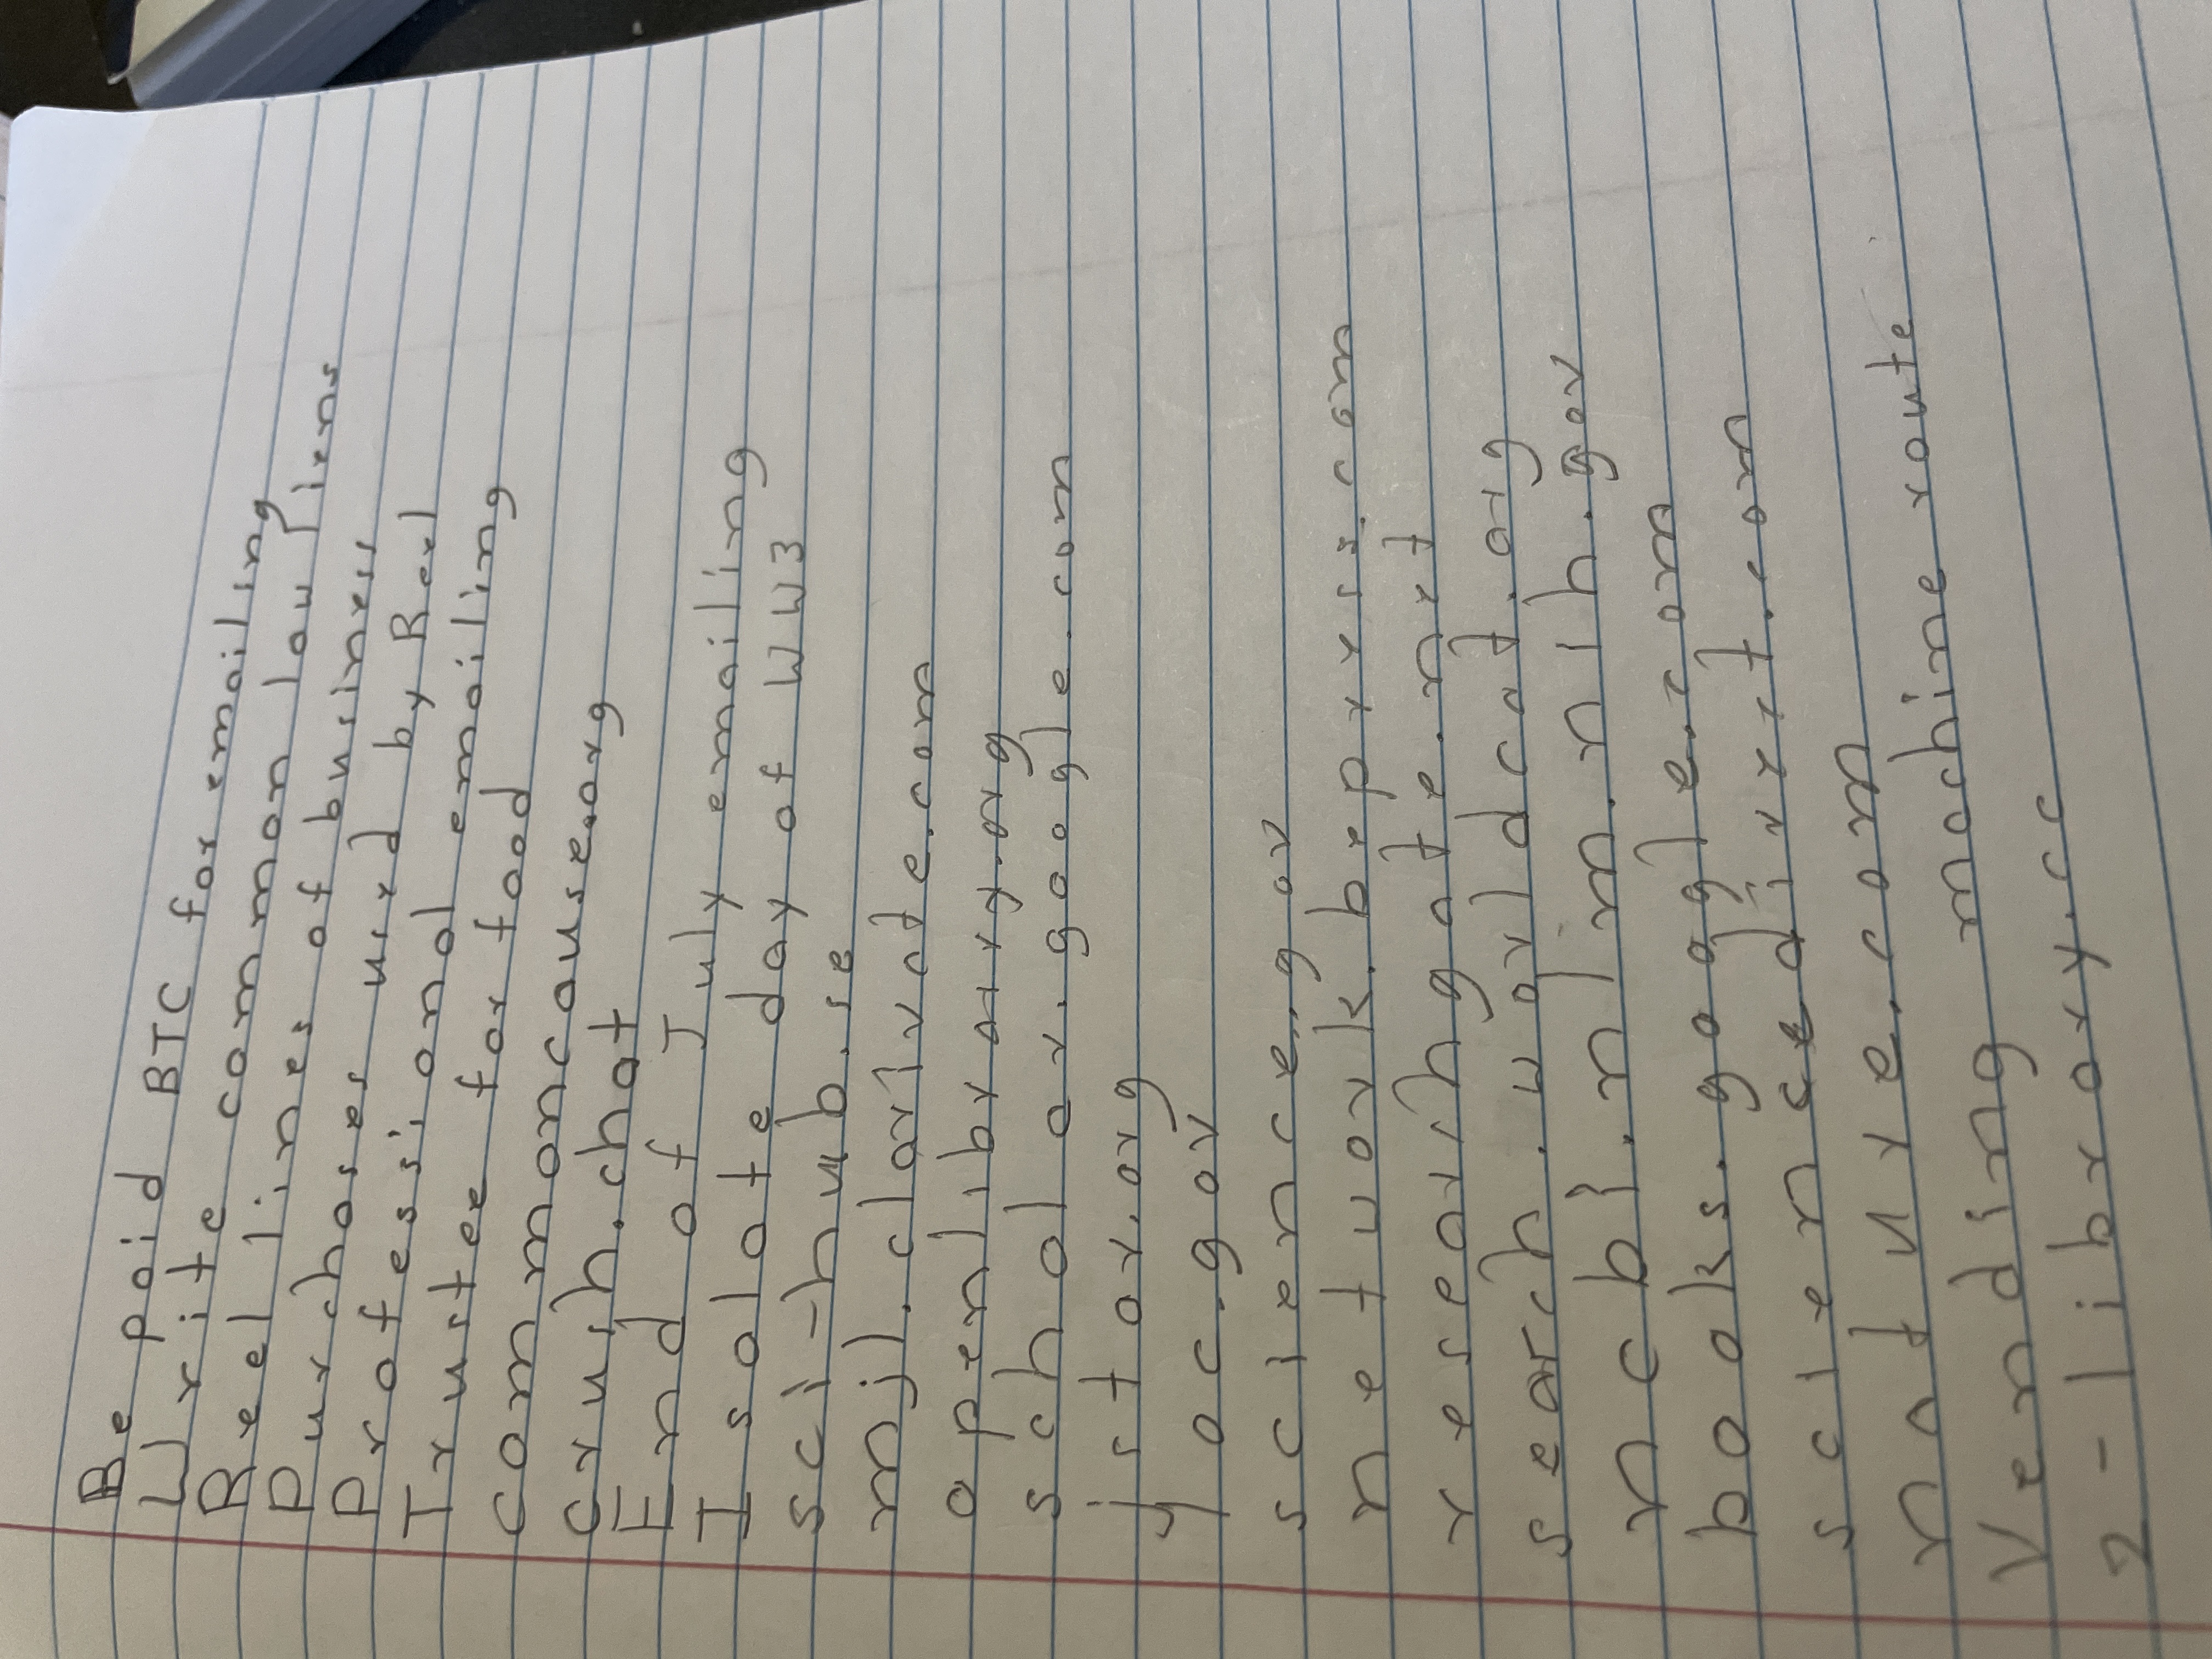 Be paid BTC for emailing
Write common law liens
Reel lines of business
Purchases used by Reel
Professional emailing
Trustee for food
commoncause.org
crush.chat
End of July emailing
Isolate day of WW3
sci-hub.se
mjl.clarivate.com
openlibrary.org
scholar.google.com
jstor.org
loc.gov
science.gov
network.bepress.com
researchgate.net
search.worldcat.org
ncbi.nlm.nih.gov
books.google.com
sciencedirect.com
nature.com
Vending machine route
z-library.cc